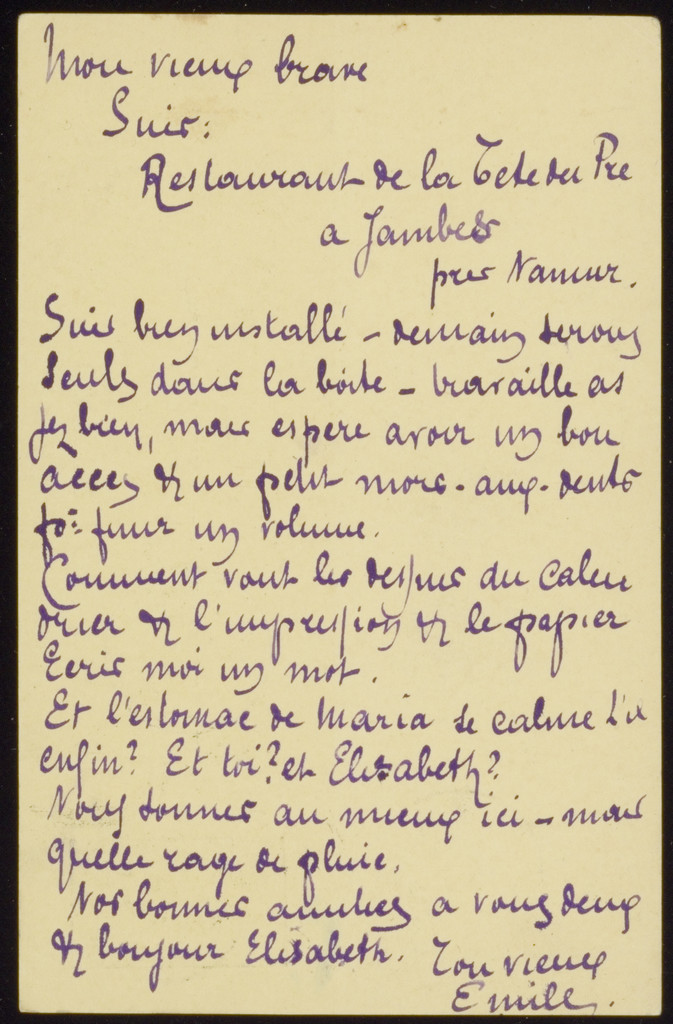 Mon vieux brave
Suis:
Restaurant de la Tete du Pré
a Jambes
pres Namur.
Suis bien installé – demain serons
seuls dans la boite – travaille as
sez bien, mais espere avoir un bon
accès & un petit mors-aux-dents
pr finir un volume.
Comment vont les dessins du calen
drier & l'impression & le papier
Ecris moi un mot.
Et l'estomac de Maria se calme t'il
enfin? Et toi? et Elisabeth?
Nous sommes au mieux ici – mais
quelle rage de pluie.
Nos bonnes amitiés a vous deux
& bonjour Elisabeth. Ton vieux
Emile.